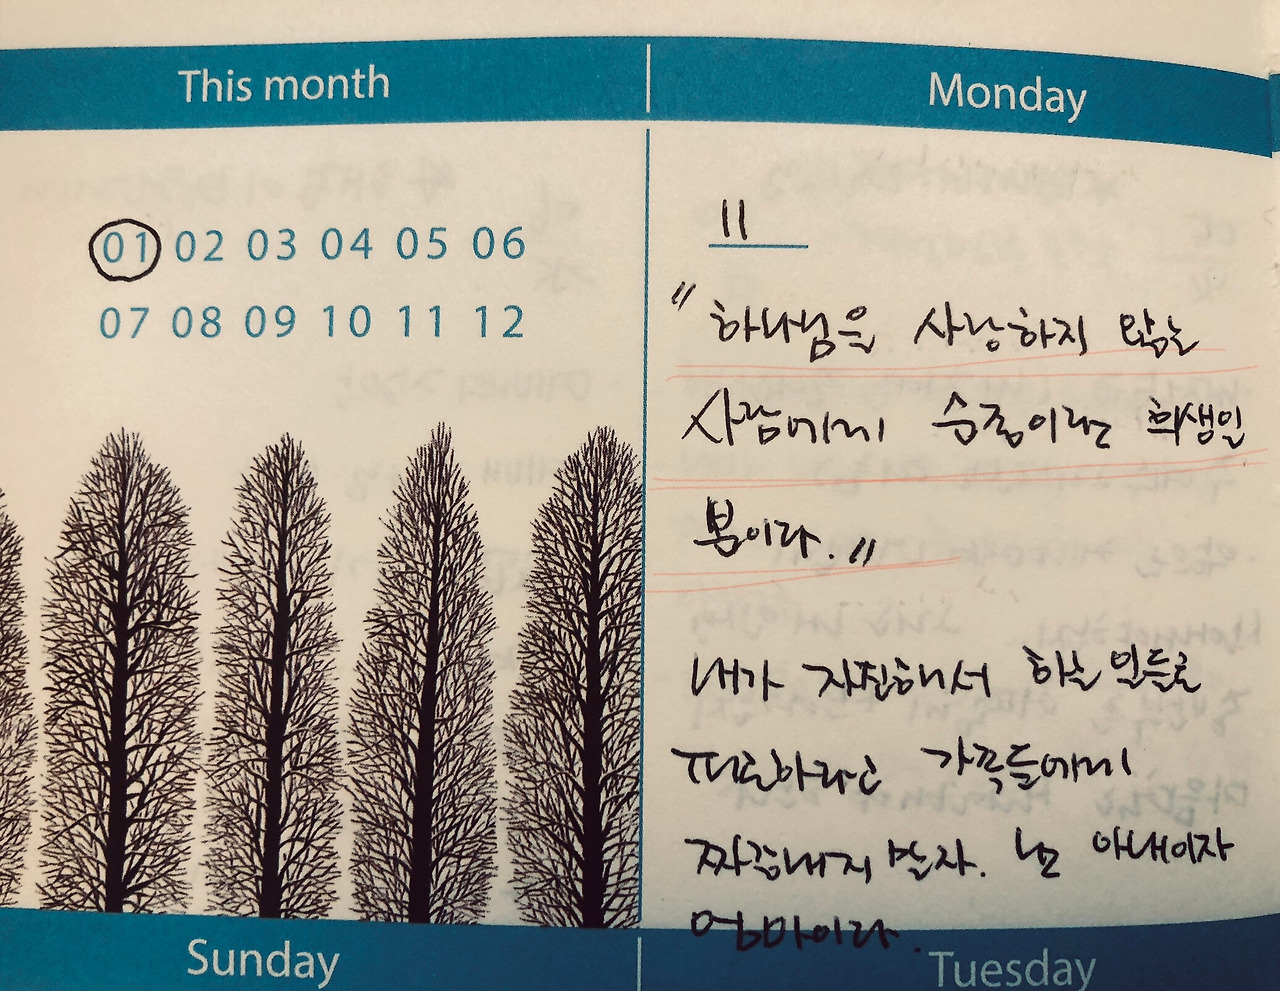 This month
Monday
01 02 03 04 05 06
07 08 09 10 11 12
11
"하나님을 사랑하지 않는
사람에게 순종이란 희생일
뿐이라."
내가 자진해서 하는 일들로
피곤하라고 가족들에게
짜증내지 말자. 난 아내이자
엄마이라.
Sunday
Tuesday